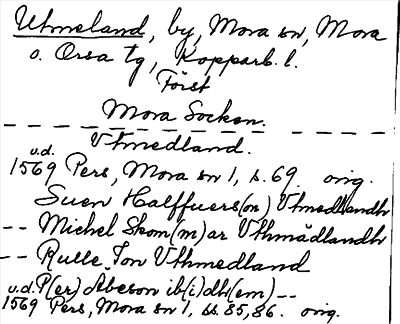 Utmeland, by, Mora sn, Mora
o. Orsa tg, Kopparb. l.
Först
Mora Socken.
Vtmedland.
u.d.
1569 Pers, Mora sn 1, s. 69. orig.
Suen Halffuers(on) Vthmedlandh
-- Michel Skom(m)ar Vthmädlandh
-- Rulle Jon Vthmedland
u.d. P(er) Abeson ib(i)dh(em) --
1569 Pers, Mora sn 1, ss. 85, 86. orig.